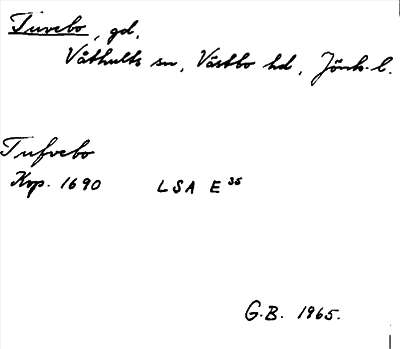 Tuvebo, gd.
Våthults sn, Västbo hd, Jönk. l.
Tufvebo
Kop. 1690 LSA E 35
G.B. 1965.